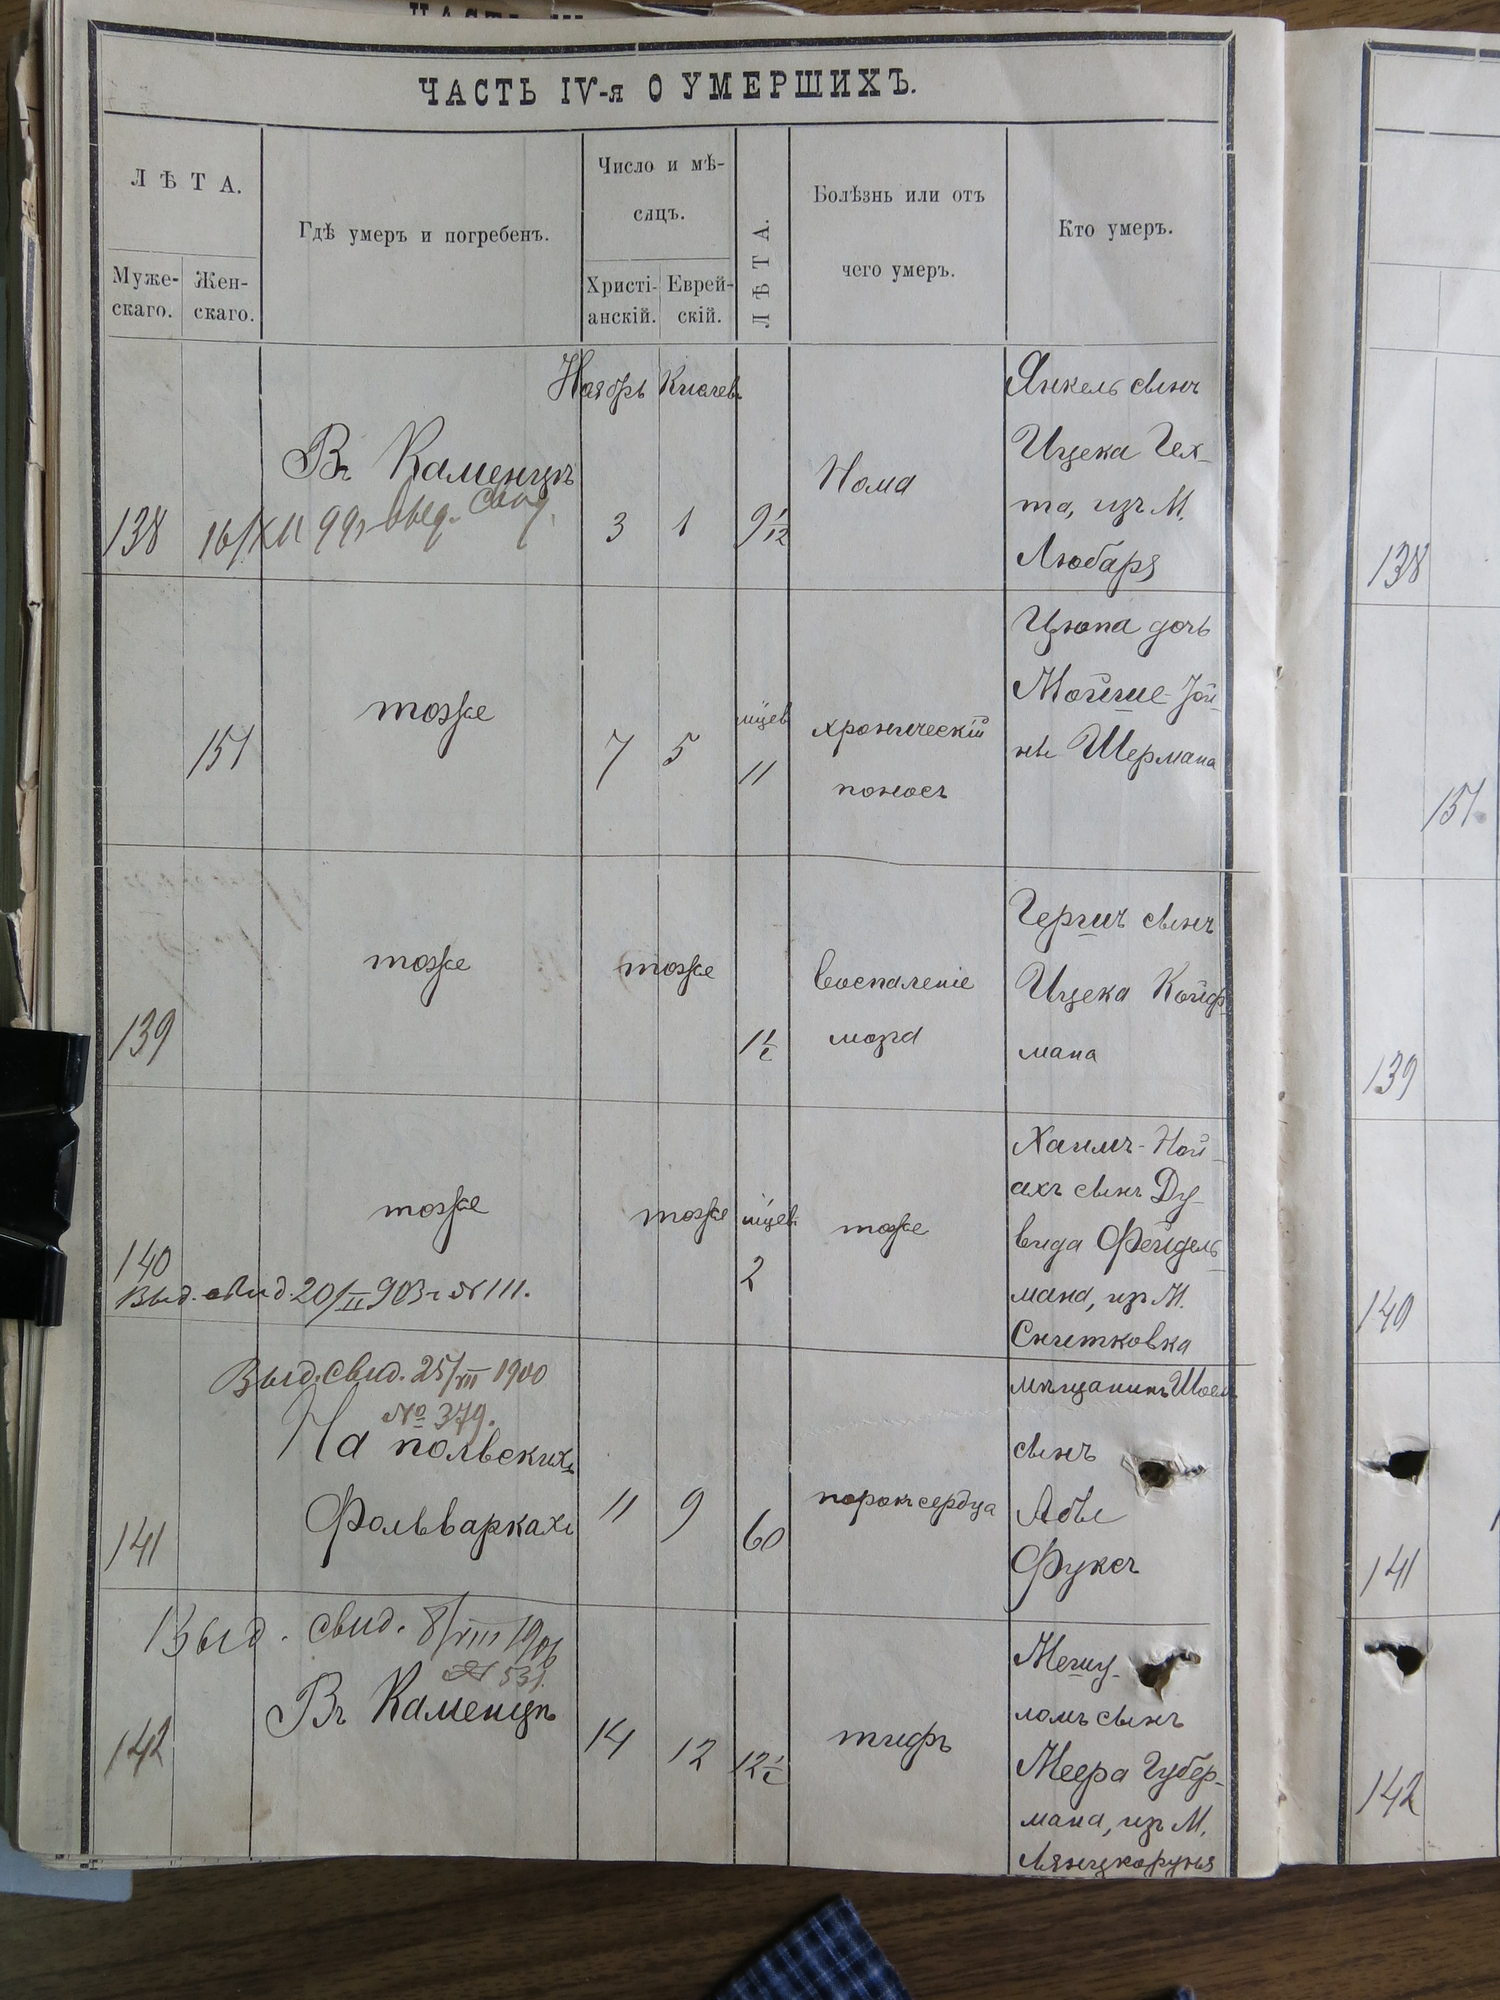 ЧАСТЬ IV-я О УМЕРШИХЪ.
ЛѢТА.
Муже-
скаго.
Жен-
скаго.
Гдѣ умеръ и погребенъ.
Число и мѣ-
сяцъ.
Христі-
анскій.
Еврей-
скій.
ЛѢТА.
Болѣзнь или отъ
чего умеръ.
Кто умеръ.
Ноябрь Кислевъ
138
Въ Каменцѣ
16/XII 99г выд. свид.
3
1
9 1/12
Нома
Янкель сынъ
Ицека Гех-
та, изъ М.
Любаря
151
тоже
7
5
мѣцев
11
хроническій
поносъ
Цюпа дочь
Мойше-Іой-
ны Шермана
139
тоже
тоже
1 1/2
воспаленіе
мозга
Гершъ сынъ
Ицека Койф-
мана
140
тоже
Выд. свид. 20/II 903 г № 111.
тоже
мѣцев
2
тоже
Хаимъ-Ной-
ахъ сынъ Ду-
вида Фейдель-
мана, изъ М.
Снитковка
Выд. свид. 25/VII 1900
№ 379.
141
На польскихъ
Фольваркахъ
11
9
60
порокъ сердца
мѣщанинъ
сынъ
Абы
Фуксъ
Выд. свид. 8/VIII 1906
№ 531.
142
Въ Каменцѣ
14
12
12 1/2
тифъ
Мешу-
ломъ сынъ
Меера Губер-
мана, изъ М.
Лянцкорунья
138
151
139
140
141
142